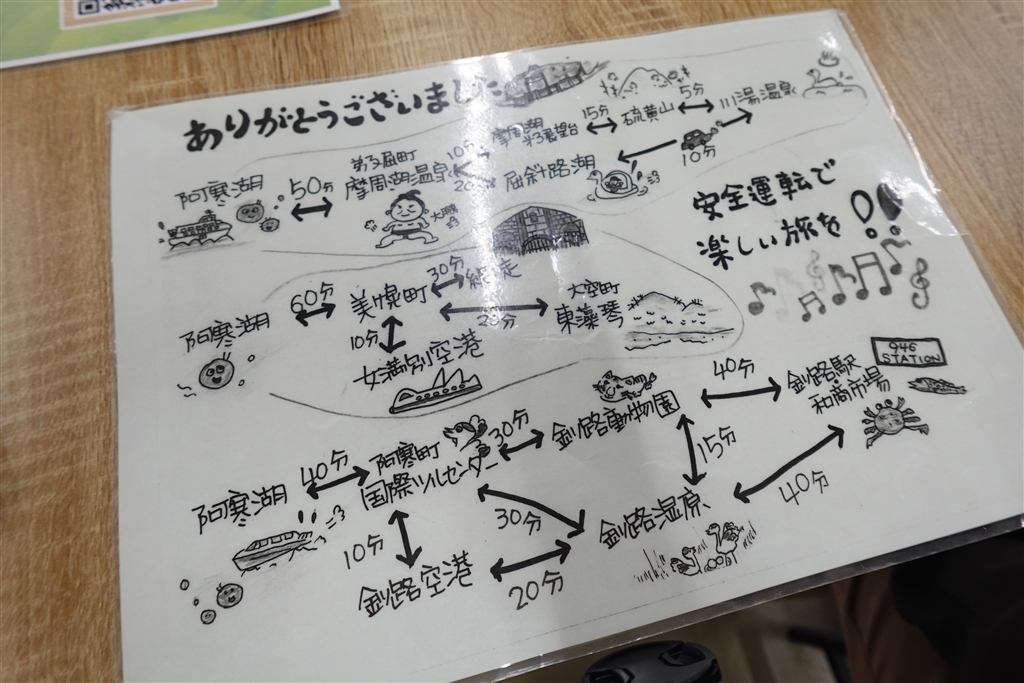 ありがとうございました
摩周湖
第3展望台
15分
硫黄山
5分
川湯温泉
阿寒湖
50分
弟子屈町
摩周湖温泉
大鵬
10分
20分
屈斜路湖
10分
安全運転で
楽しい旅を
阿寒湖
60分
美幌町
30分
網走
20分
大空町
東藻琴
10分
女満別空港
946
STATION
阿寒湖
40分
阿寒町
国際ツルセンター
30分
釧路動物園
40分
釧路駅
和商市場
10分
釧路空港
30分
20分
釧路湿原
15分
40分